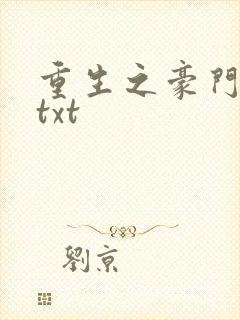 重生之豪門
txt
劉京